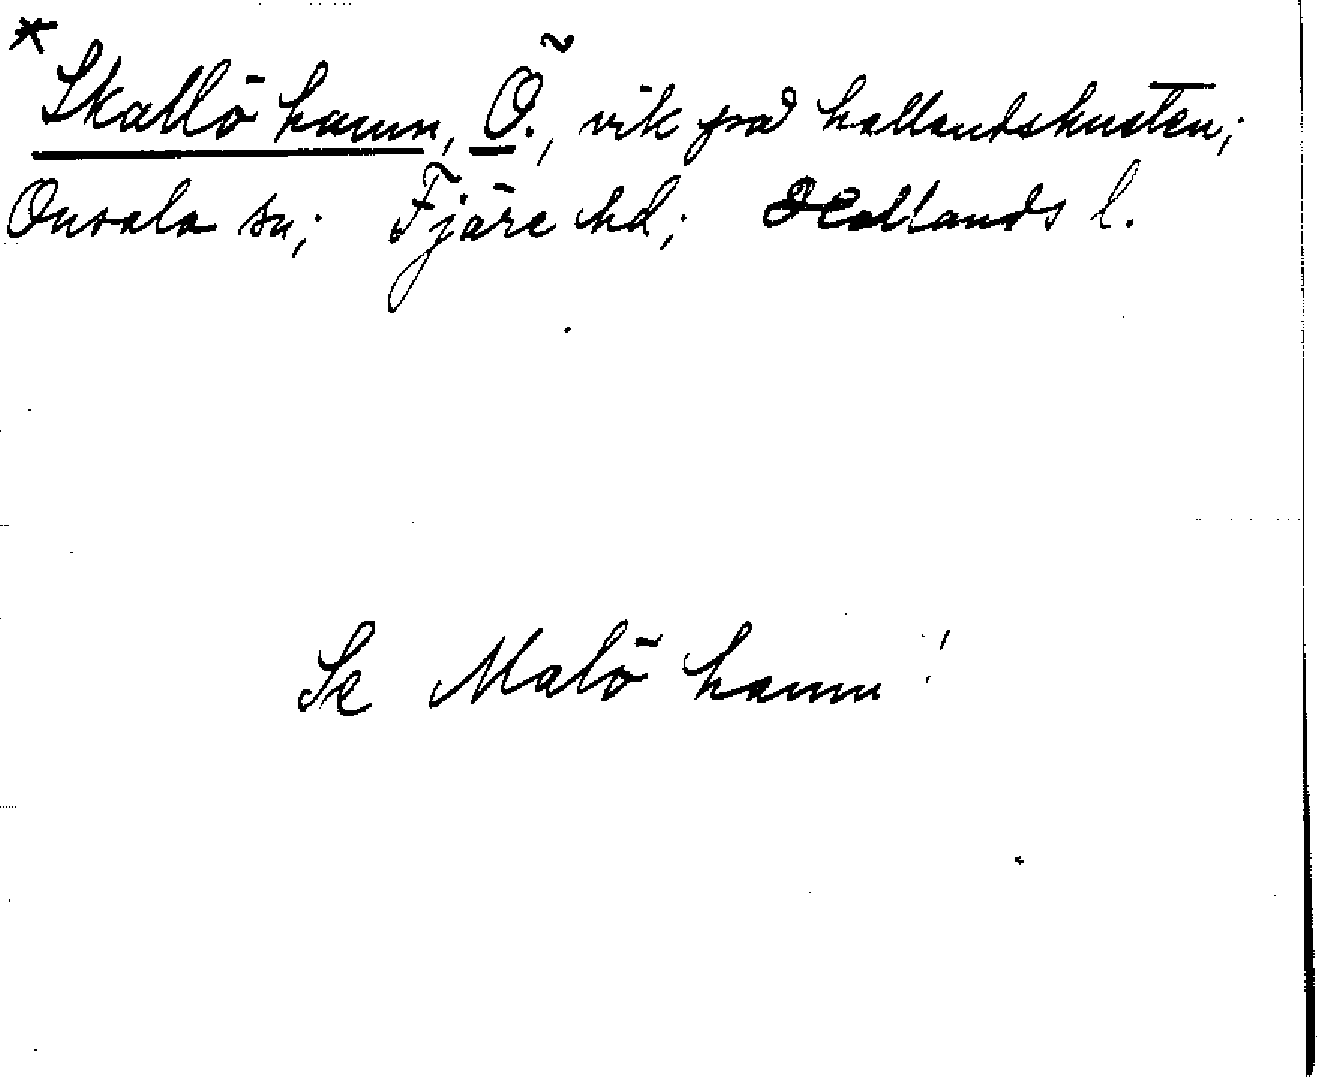 * Skallö hamn, Ö., vik på hallandskusten;
Onsala sn; Fjäre hd; Hallands l.
Se Malö hamn!